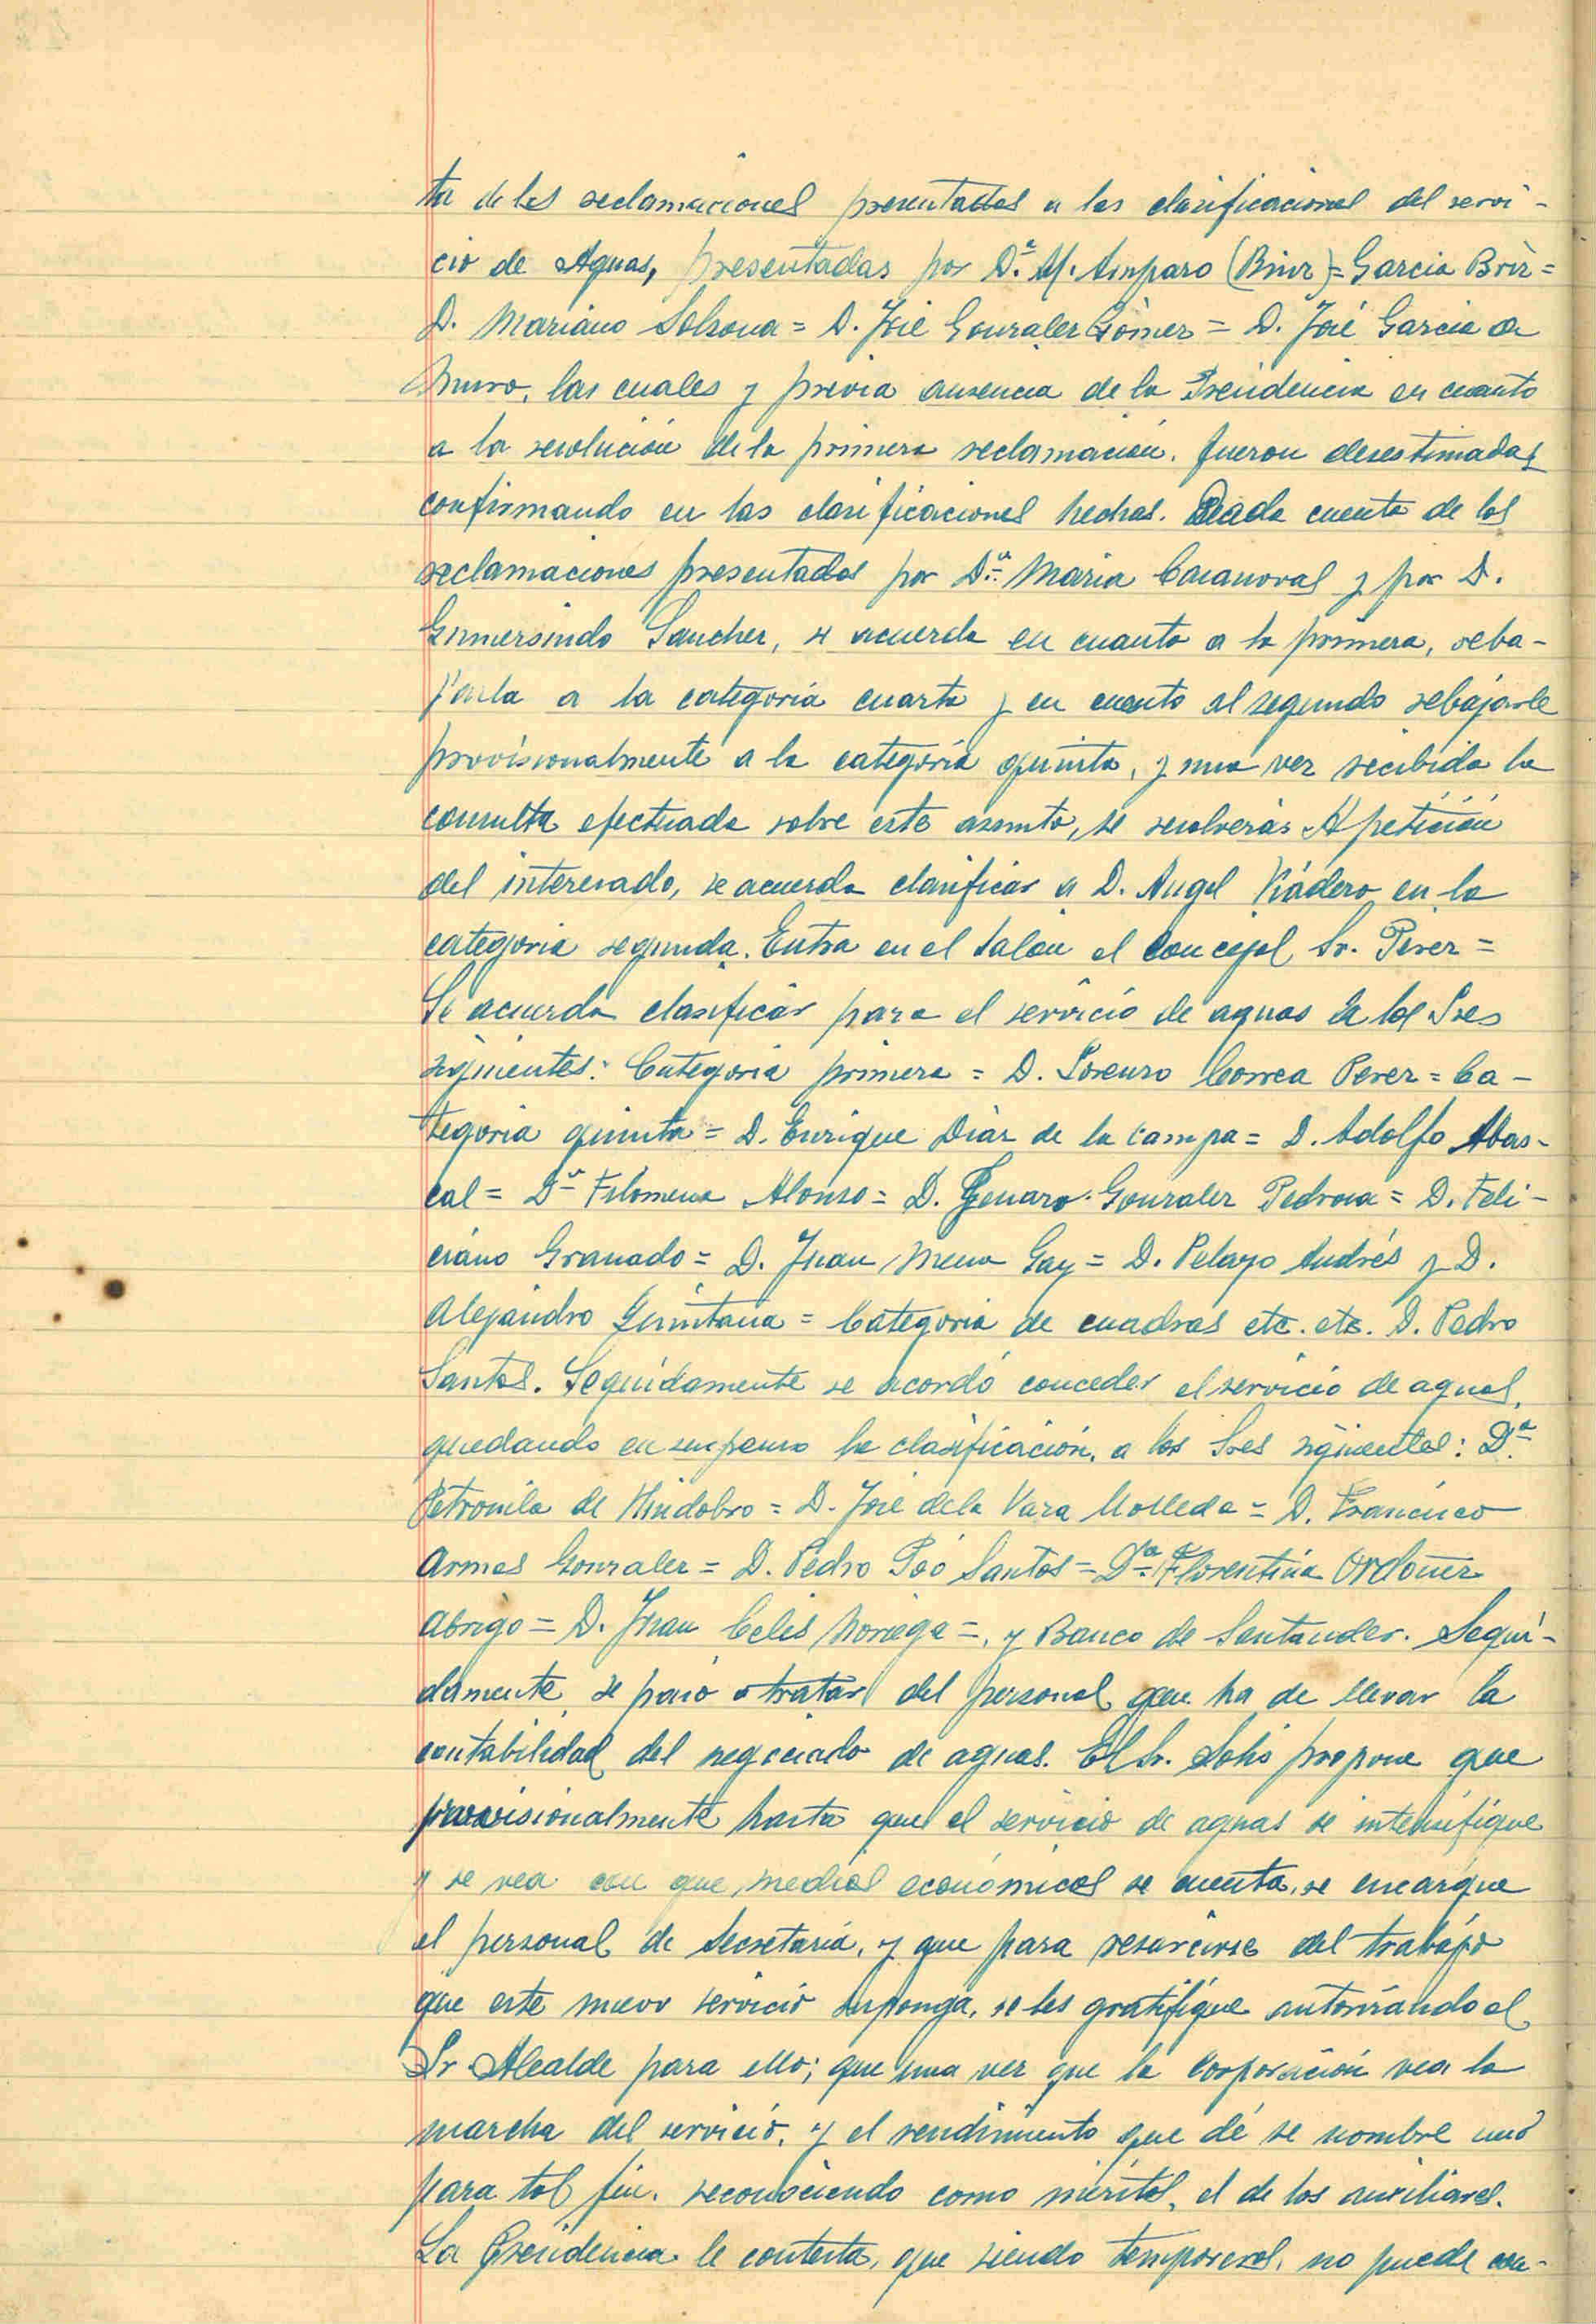 ta de las reclamaciones presentadas a las clasificaciones del servi-
cio de Aguas, presentadas por D.ª M. Amparo (Briz) = Garcia Briz =
D. Mariano Solsona = D. José Gonzalez Gómez = D. José Garcia de
Muro, las cuales y previa ausencia de la Presidencia en cuanto
a la resolución de la primera reclamación, fueron desestimadas
confirmando en las clasificaciones hechas. Dada cuenta de las
reclamaciones presentadas por D.ª Maria Casanovas y por D.
Gumersindo Sanchez, se acuerda en cuanto a la primera, reba-
jarla a la categoría cuarta y en cuanto al segundo rebajarle
provisionalmente a la categoría quinta, y una vez recibida la
consulta efectuada sobre este asunto, se resolverá. A petición
del interesado, se acuerda clasificar a D. Angel Viadero en la
categoria segunda. Entra en el Salón el concejal Sr. Perez =
Se acuerda clasificar para el servicio de aguas a los Sres
siguientes: Categoria primera = D. Lorenzo Correa Perez = Ca-
tegoria quinta = D. Enrique Diaz de la Campa = D. Adolfo Abas-
cal = D.ª Filomena Alonso = D. Genaro Gonzalez Pedrosa = D. Feli-
ciano Granado = D. Juan Mena Gay = D. Pelayo Andrés y D.
Alejandro Quintana = Categoria de cuadras etc. etc. D. Pedro
Santos. Seguidamente se acordó conceder el servicio de aguas,
quedando en suspenso la clasificación, a los Sres siguientes: D.ª
Petronila de Hindobro = D. José de la Vara Molleda = D. Francisco
Armas Gonzalez = D. Pedro Poó Santos = D.ª Florentina Ordoñez
Abrigo = D. Juan Celis Noriega =, y Banco de Santander. Segui-
damente, se pasó a tratar del personal que ha de llevar la
contabilidad del negociado de aguas. El Sr. Solis propone que
provisionalmente hasta que el servicio de aguas se intensifique
y se vea con que medios económicos se cuenta, se encargue
el personal de Secretaría, y que para resarcirse del trabajo
que este nuevo servicio suponga, se les gratifique autorizando al
Sr. Alcalde para ello; que una vez que la corporación vea la
marcha del servicio, y el rendimiento que dé se nombre uno
para tal fin, reconociendo como méritos, el de los auxiliares.
La Presidencia le contesta, que siendo temporeros, no puede con-